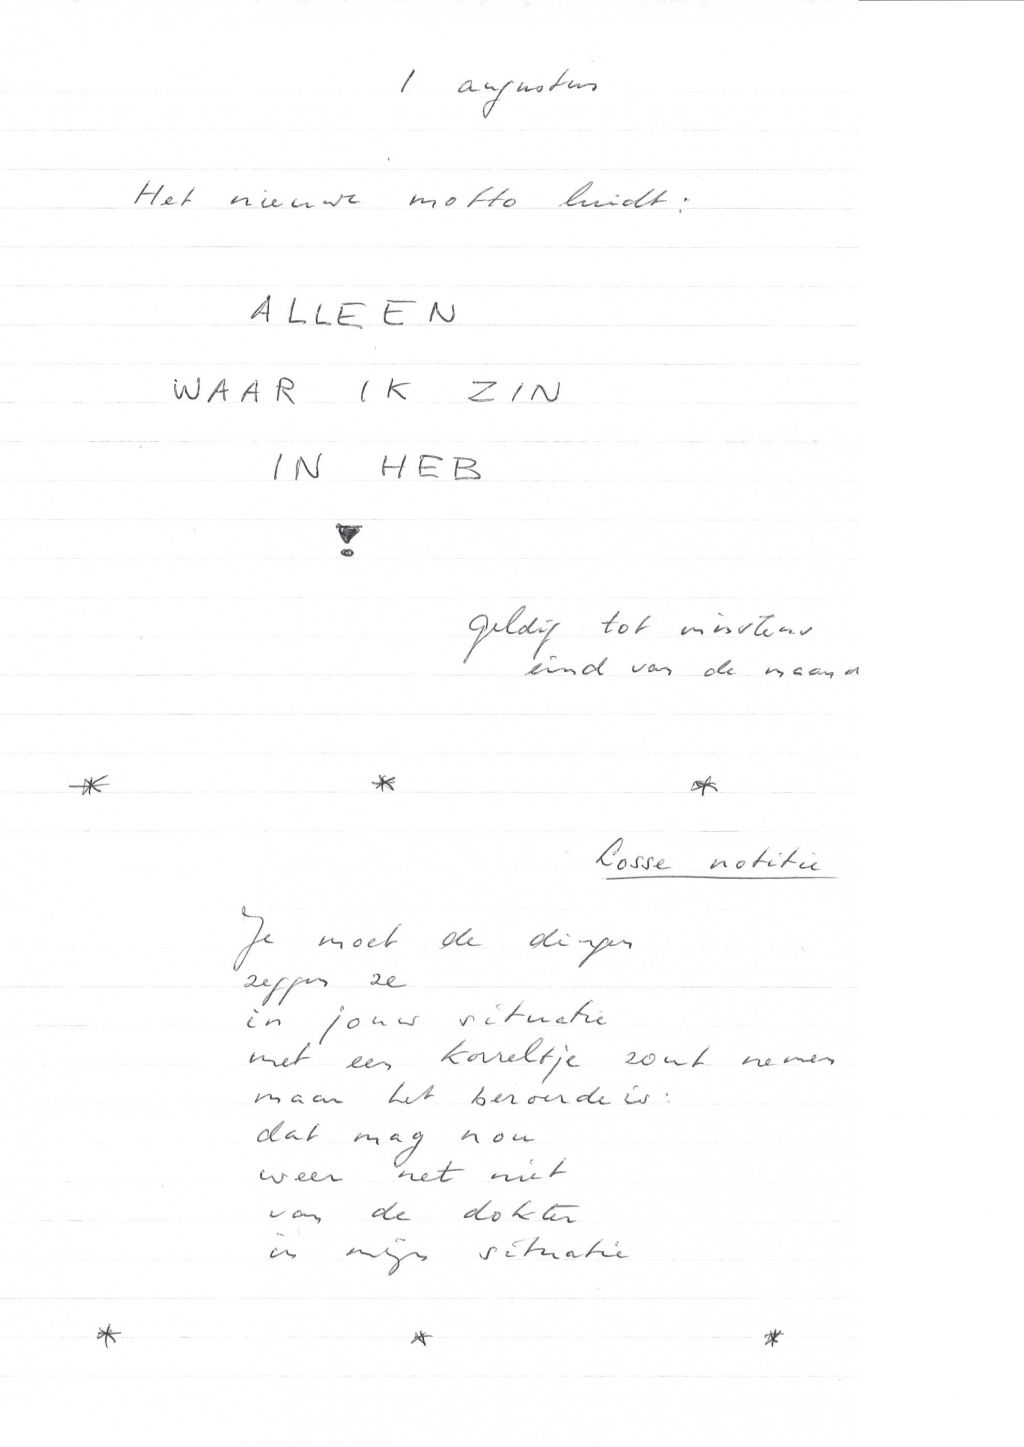 1 augustus
Het nieuwe motto luidt:
ALLEEN
WAAR IK ZIN
IN HEB
!
geldig tot minstens
eind van de maand
* * *
Losse notitie
Je moet de dingen
zeggen ze
in jouw situatie
met een korreltje zout nemen
maar het beroerde is:
dat mag nou
weer net niet
van de dokter
in mijn situatie
* * *